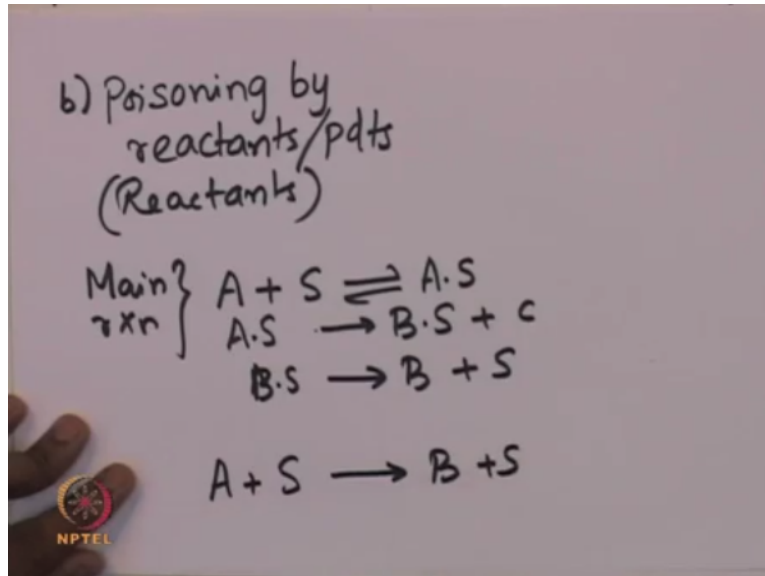 b) Poisoning by
reactants/pdts
(Reactants)
Main } A + S ⇌ A·S
rxn } A·S → B·S + C
B·S → B + S
A + S → B + S
NPTEL